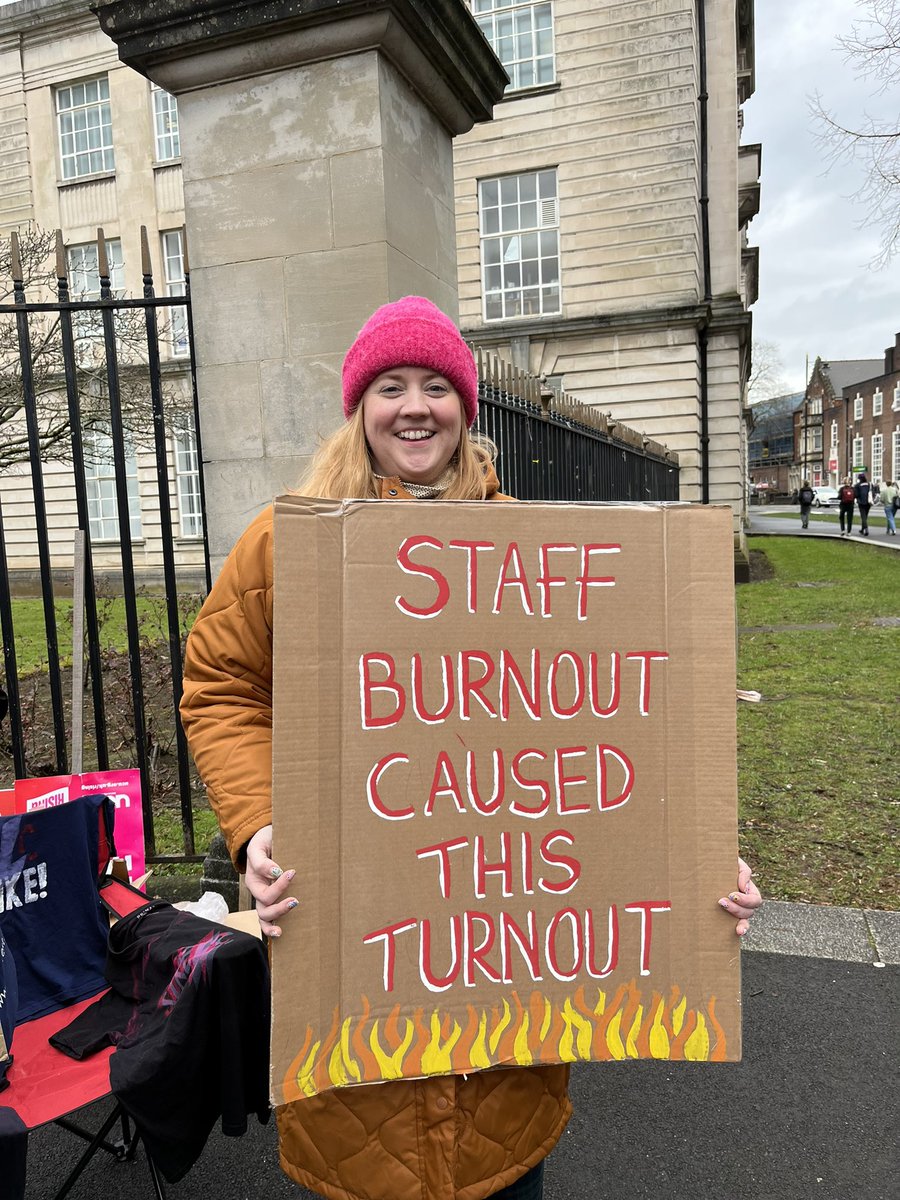 STAFF
BURNOUT
CAUSED
THIS
TURNOUT
RISING
IKE!